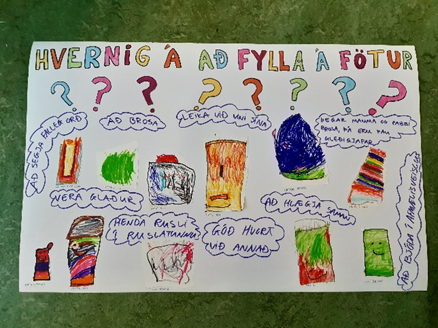 HVERNIG Á AÐ FYLLA Á FÖTUR
? ? ? ? ? ? ?
AÐ SEGJA FALLEG ORÐ
AÐ BROSA
LEIKA VIÐ VINI SÍNA
ÞEGAR MAMMA OG PABBI
BROSA, ÞÁ ERU ÞAU
GLEÐIGJAFAR
VERA GLAÐUR
HENDA RUSLI
Í RUSLATUNNU
GÓÐ HVORT
VIÐ ANNAÐ
AÐ HLÆGJA SAMAN
AÐ BJÓÐA Í